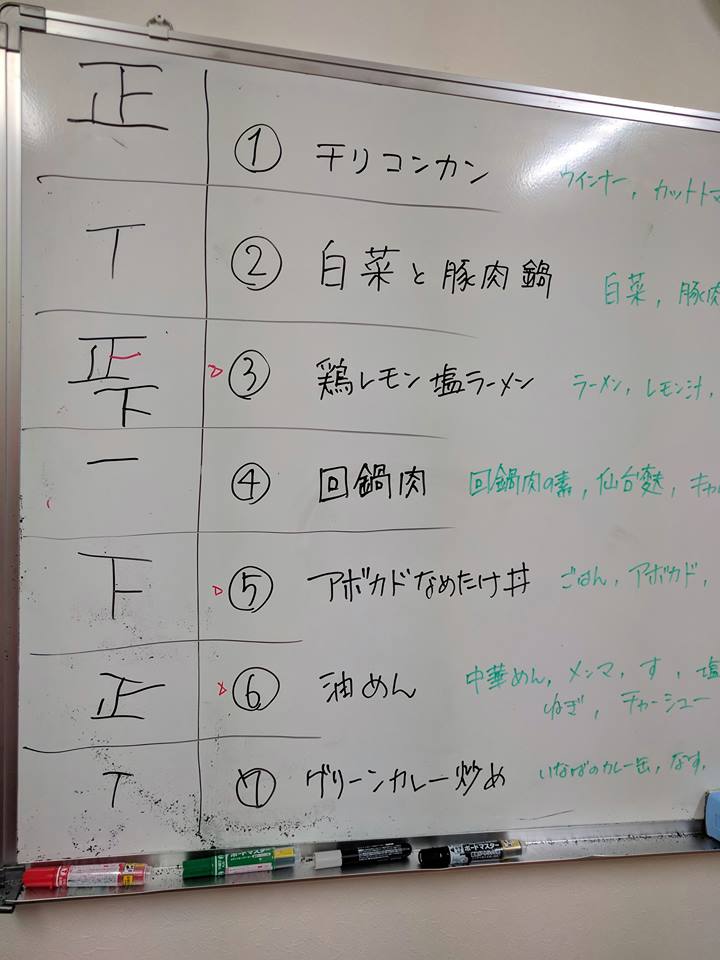 正 ① チリコンカン ウインナー, カットトマ
T ② 白菜と豚肉鍋 白菜, 豚肉
正下 ③ 鶏レモン塩ラーメン ラーメン, レモン汁,
一 ④ 回鍋肉 回鍋肉の素, 仙台麩, キャ
下 ⑤ アボカドなめたけ丼 ごはん, アボカド,
正 ⑥ 油めん 中華めん, メンマ, す, 塩
ねぎ, チャーシュー
T ⑦ グリーンカレー炒め いなばのカレー缶, なす,
ボードマスター
ボードマスター